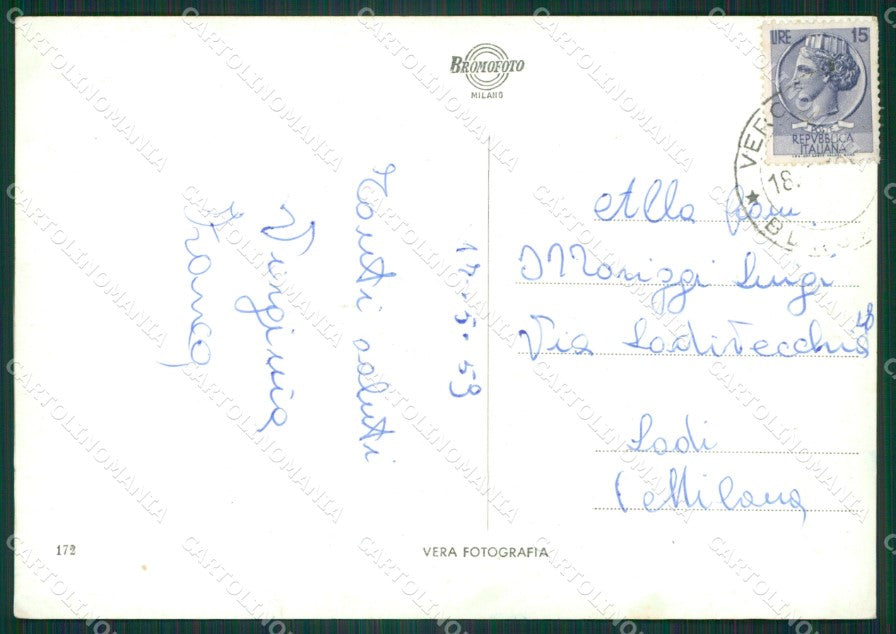 BROMOFOTO
MILANO
LIRE 15
POSTE
REPVBBLICA
ITALIANA
VERO
18.
17.5.59
Tanti saluti
Virginia
Franca
Alla fam.
Marizzi Luigi
Via Lodivecchio 48
Lodi
Milano
172
VERA FOTOGRAFIA
CARTOLINOMANIA